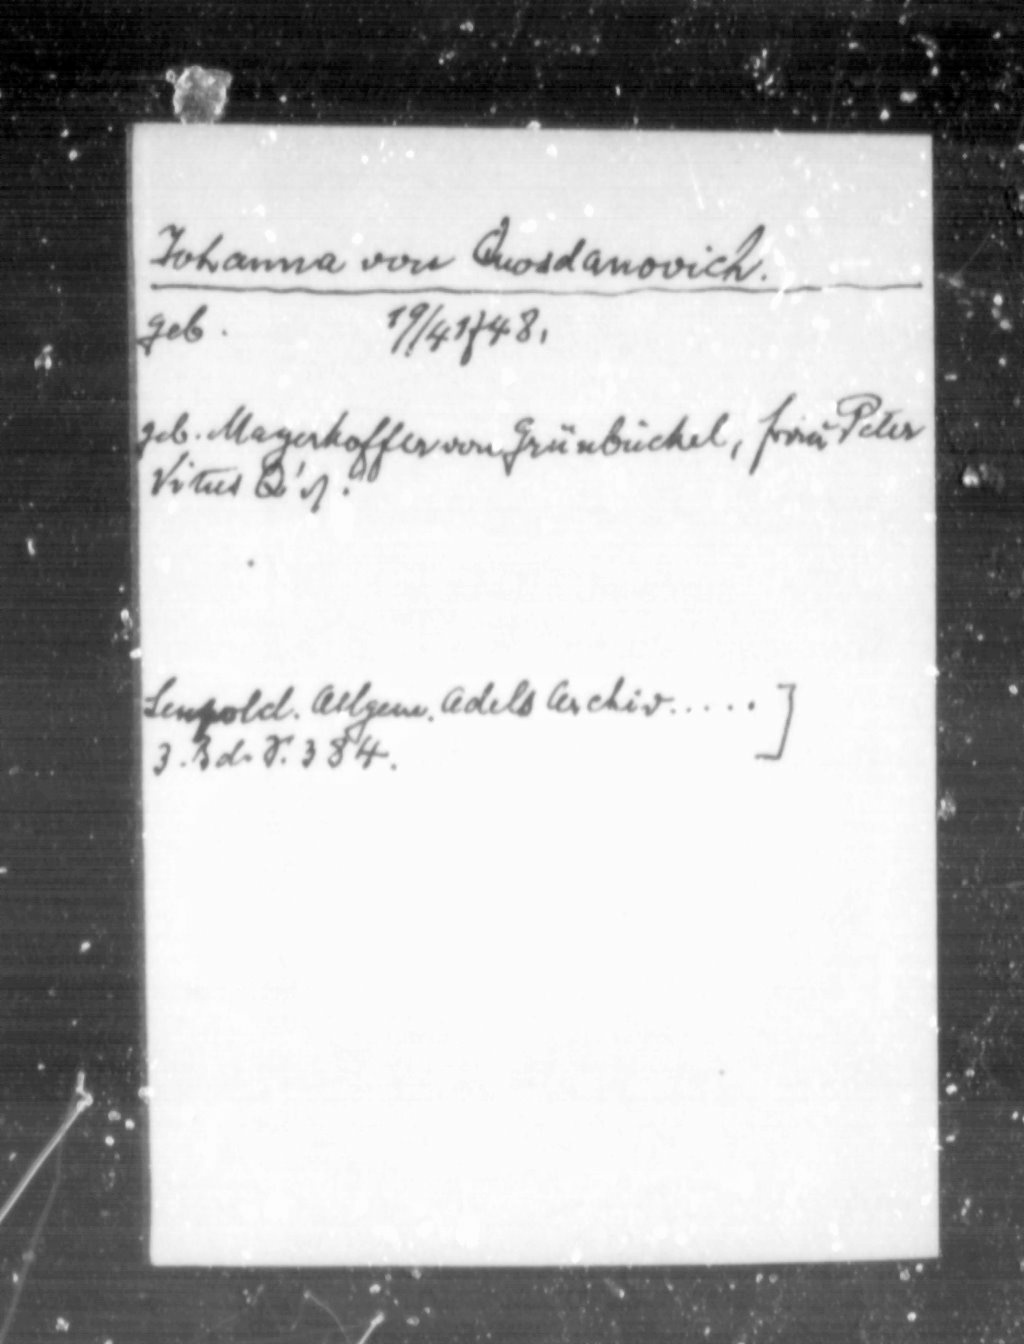 Johanna von Quosdanovich.
geb. 19/4 1748.
geb. Mayerhoffer von Grünbüchel, frau Peter
Vitus Q's.
Leupold. Allgem. Adels Archiv.....]
3. Bd. S. 384.